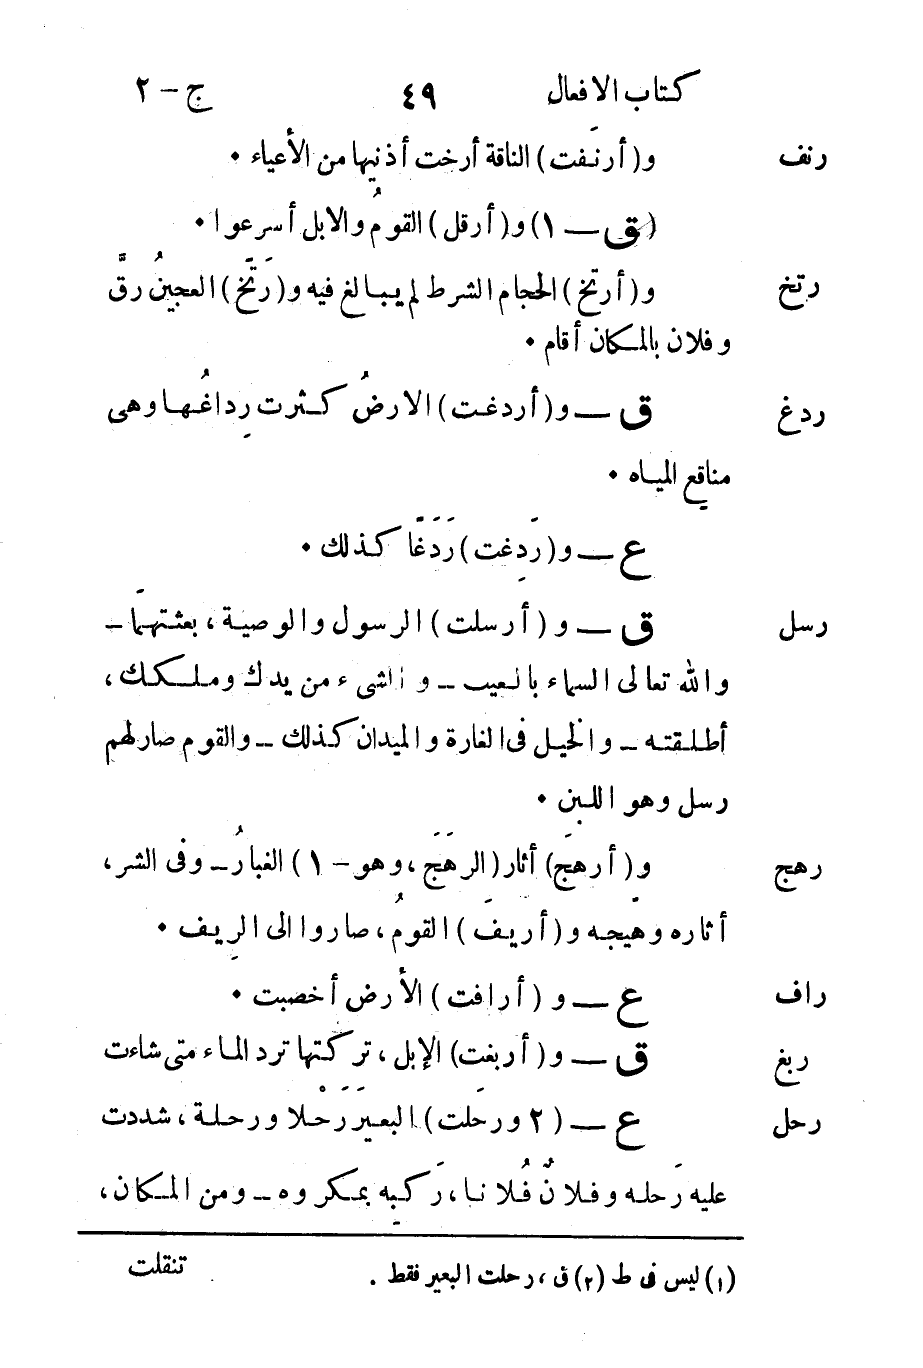 كتاب الافعال ٤٩ ج – ٢
رنف و(أرنَفت) الناقة أرخت أذنيها من الأعياء •
(ق — ١) و(أرقل) القومُ والابل أسرعوا •
رتخ و(أرتخ) الحجام الشرط لم يبالغ فيه و(رَتَخ) العجينُ رقَّ
وفلان بالمكان أقام •
ردغ ق — و(أردغت) الارضُ كثرت رِداغُها وهى
مناقع المياه •
ع — و(رَدِغت) رَدَغًا كذلك •
رسل ق — و (أرسلت) الرسول والوصية، بعثتهمَا –
والله تعالى السماء بالغيب – والشىء من يدك وملكك،
أطلقته – والخيل فى الغارة والميدان كذلك – والقوم صار لهم
رسل وهو اللبن •
رهج و(أرهَج) أثار (الرهَجَ، وهو – ١) الغبارُ – وفى الشر،
أثاره وهيّجه و(أريفَ) القومُ، صاروا الى الرِيف •
راف ع — و (أرافت) الأرض أخصبت •
ربغ ق — و(أربغت) الإبل، تركتَها ترد الماء متى شاءت
رحل ع — (٢ ورحَلت) البعيَر رَحْلا ورحلة، شددت
عليه رَحله وفلانٌ فُلانا، رَكبه بمكروه – ومن المكان،
(١) ليس فى ط (٢) ق، رحلت البعير فقط . تنقلت